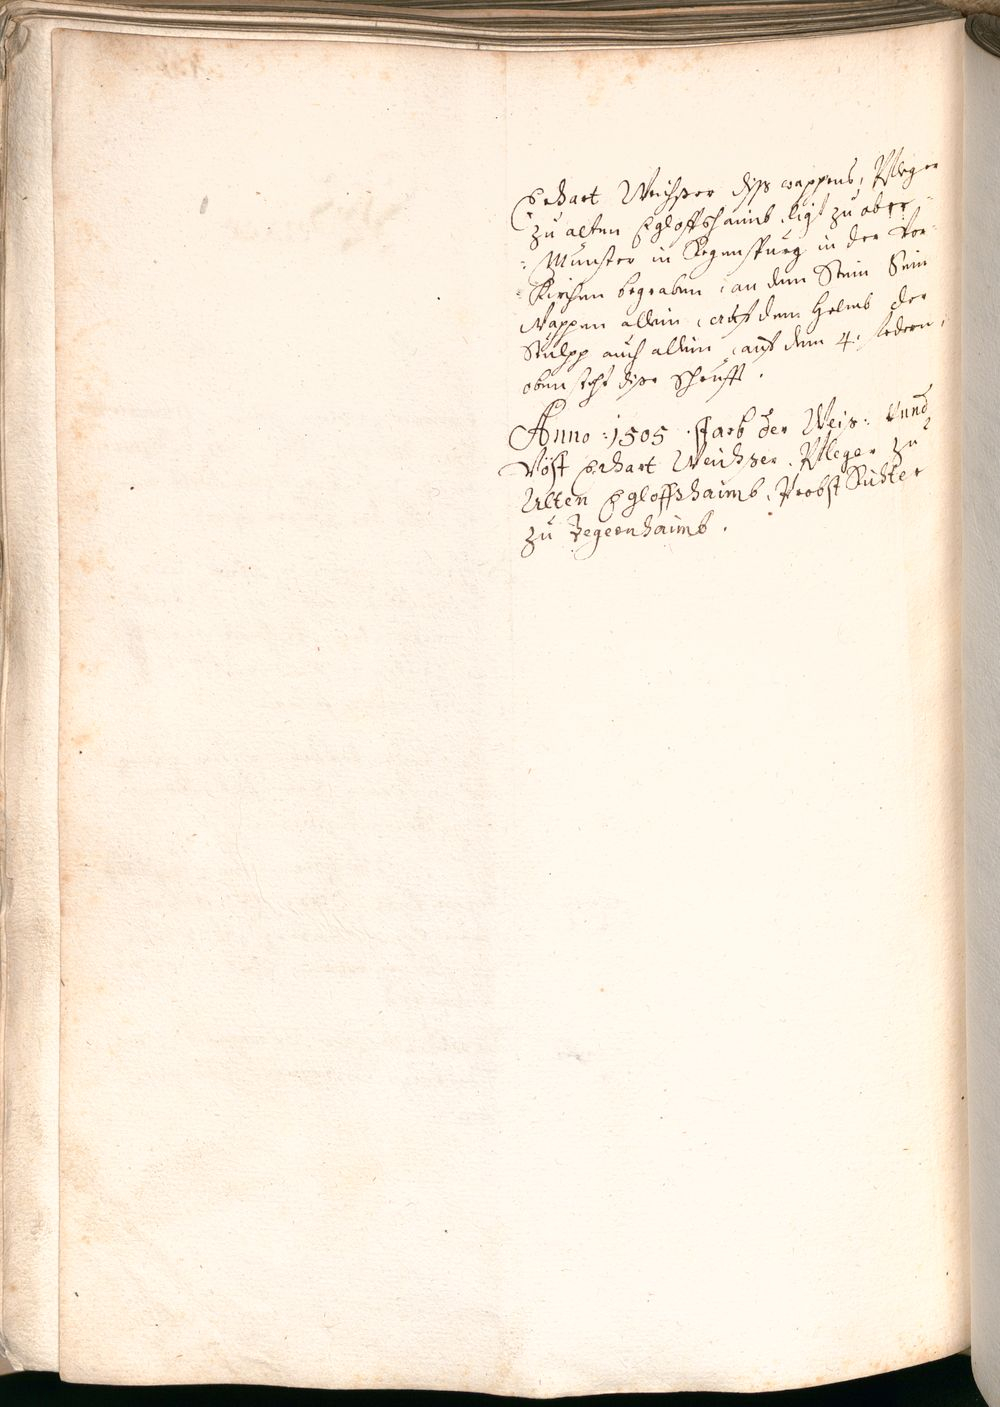 Erhart Weichser diss wappens, Pfleger
zu alten Egloffshaimb ligt zu ober-
Münster in Regenspurg in der Vor-
Kirchen begraben, an dem Stein Sein
Wappen allein, auf dem Helmb der
Stulpp auch allein, auf dem 4. federn,
oben steht dise Schrifft.
Anno 1505 starb der Weis: Vnnd
Vöst Erhart Weichser, Pfleger zu
Alten Egloffshaimb, Probst Richter
zu